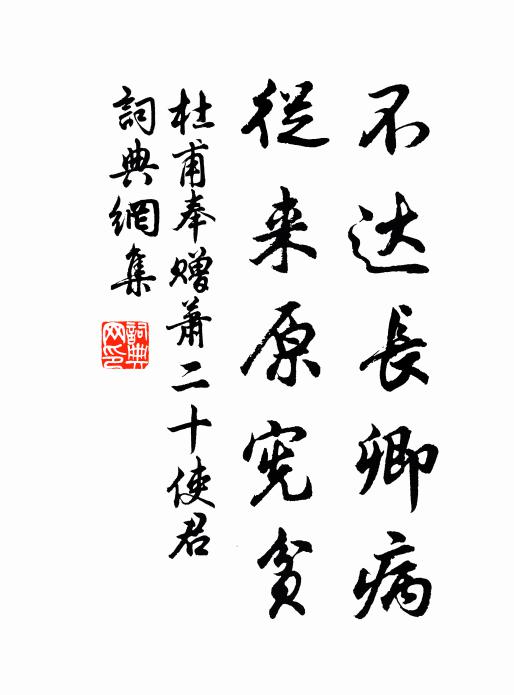 不达長卿病
從来原宪貧
杜甫奉赠萧二十使君
詞典網集
詞典
网印